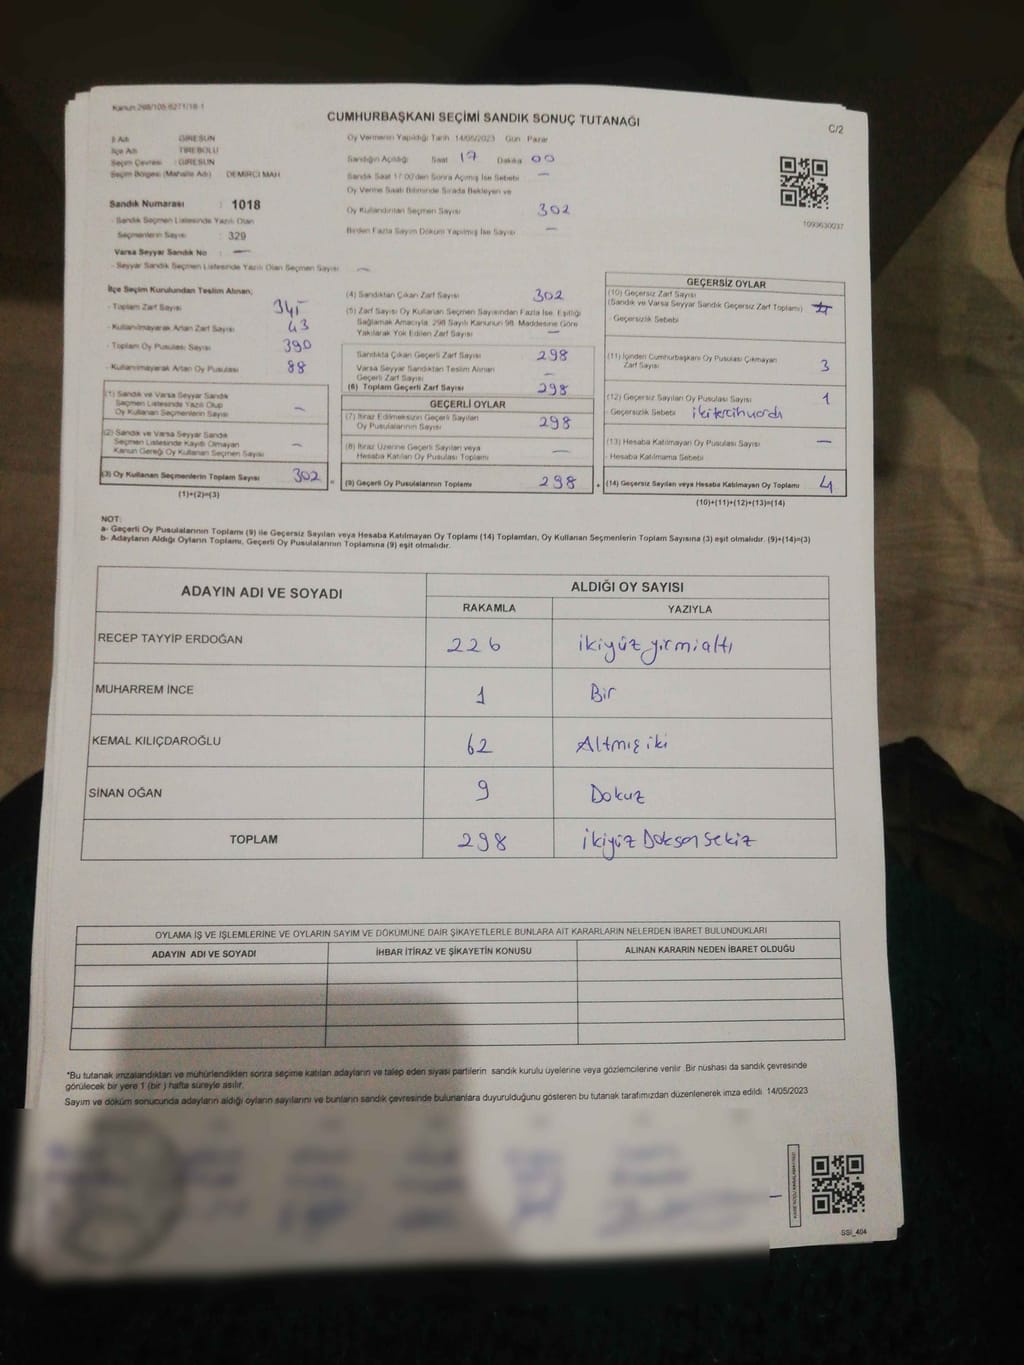 Kanun 298/105-6271/18-1
CUMHURBAŞKANI SEÇİMİ SANDIK SONUÇ TUTANAĞI
C/2
İl Adı GİRESUN
İlçe Adı TİREBOLU
Seçim Çevresi : GİRESUN
Seçim Bölgesi (Mahalle Adı) DEMİRCİ MAH
Sandık Numarası : 1018
- Sandık Seçmen Listesinde Yazılı Olan
Seçmenlerin Sayısı : 329
Varsa Seyyar Sandık No : —
- Seyyar Sandık Seçmen Listesinde Yazılı Olan Seçmen Sayısı —
Oy Vermenin Yapıldığı Tarih 14/05/2023 Gün Pazar
Sandığın Açıldığı Saat 17 Dakika 00
Sandık Saat 17:00'den Sonra Açılmış İse Sebebi —
Oy Verme Saati Bitiminde Sırada Bekleyen ve
Oy Kullandırılan Seçmen Sayısı 302
Birden Fazla Sayım Döküm Yapılmış İse Sayısı —
1093630037
İlçe Seçim Kurulundan Teslim Alınan;
- Toplam Zarf Sayısı 345
- Kullanılmayarak Artan Zarf Sayısı 43
- Toplam Oy Pusulası Sayısı 390
- Kullanılmayarak Artan Oy Pusulası 88
(1) Sandık ve Varsa Seyyar Sandık
Seçmen Listesinde Yazılı Olup
Oy Kullanan Seçmenlerin Sayısı —
(2) Sandık ve Varsa Seyyar Sandık
Seçmen Listesinde Kayıtlı Olmayan
Kanun Gereği Oy Kullanan Seçmen Sayısı —
(3) Oy Kullanan Seçmenlerin Toplam Sayısı 302
(1)+(2)=(3)
(4) Sandıktan Çıkan Zarf Sayısı 302
(5) Zarf Sayısı Oy Kullanan Seçmen Sayısından Fazla İse, Eşitliği
Sağlamak Amacıyla, 298 Sayılı Kanunun 98. Maddesine Göre
Yakılarak Yok Edilen Zarf Sayısı —
Sandıkta Çıkan Geçerli Zarf Sayısı 298
Varsa Seyyar Sandıktan Teslim Alınan
Geçerli Zarf Sayısı —
(6) Toplam Geçerli Zarf Sayısı 298
GEÇERLİ OYLAR
(7) İtiraz Edilmeksizin Geçerli Sayılan
Oy Pusulalarının Sayısı 298
(8) İtiraz Üzerine Geçerli Sayılan veya
Hesaba Katılan Oy Pusulası Toplamı —
= (9) Geçerli Oy Pusulalarının Toplamı 298
GEÇERSİZ OYLAR
(10) Geçersiz Zarf Sayısı
(Sandık ve Varsa Seyyar Sandık Geçersiz Zarf Toplamı)
- Geçersizlik Sebebi
(11) İçinden Cumhurbaşkanı Oy Pusulası Çıkmayan
Zarf Sayısı 3
(12) Geçersiz Sayılan Oy Pusulası Sayısı 1
- Geçersizlik Sebebi iki tercih vardı
(13) Hesaba Katılmayan Oy Pusulası Sayısı —
- Hesaba Katılmama Sebebi
+ (14) Geçersiz Sayılan veya Hesaba Katılmayan Oy Toplamı 4
(10)+(11)+(12)+(13)=(14)
NOT:
a- Geçerli Oy Pusulalarının Toplamı (9) ile Geçersiz Sayılan veya Hesaba Katılmayan Oy Toplamı (14) Toplamları, Oy Kullanan Seçmenlerin Toplam Sayısına (3) eşit olmalıdır. (9)+(14)=(3)
b- Adayların Aldığı Oyların Toplamı, Geçerli Oy Pusulalarının Toplamına (9) eşit olmalıdır.
ADAYIN ADI VE SOYADI
ALDIĞI OY SAYISI
RAKAMLA YAZIYLA
RECEP TAYYİP ERDOĞAN 226 ikiyüz yirmialtı
MUHARREM İNCE 1 Bir
KEMAL KILIÇDAROĞLU 62 Altmış iki
SİNAN OĞAN 9 Dokuz
TOPLAM 298 ikiyüz Doksan sekiz
OYLAMA İŞ VE İŞLEMLERİNE VE OYLARIN SAYIM VE DÖKÜMÜNE DAİR ŞİKAYETLERLE BUNLARA AİT KARARLARIN NELERDEN İBARET BULUNDUKLARI
ADAYIN ADI VE SOYADI İHBAR İTİRAZ VE ŞİKAYETİN KONUSU ALINAN KARARIN NEDEN İBARET OLDUĞU
*Bu tutanak imzalandıktan ve mühürlendikten sonra seçime katılan adayların ve talep eden siyasi partilerin sandık kurulu üyelerine veya gözlemcilerine verilir. Bir nüshası da sandık çevresinde
görülecek bir yere 1 (bir) hafta süreyle asılır.
Sayım ve döküm sonucunda adayların aldığı oyların sayılarını ve bunların sandık çevresinde bulunanlara duyurulduğunu gösteren bu tutanak tarafımızdan düzenlenerek imza edildi 14/05/2023
SSI_404